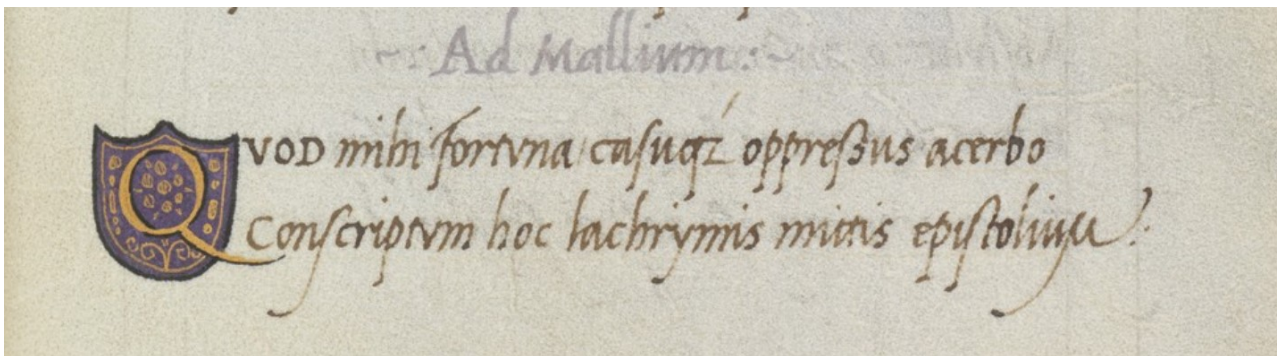 Ad Mallium:
QVOD mihi fortvna casuq́ȝ oppreſsus acerbo
Conscriptvm hoc lachrymis mittis epistolium.